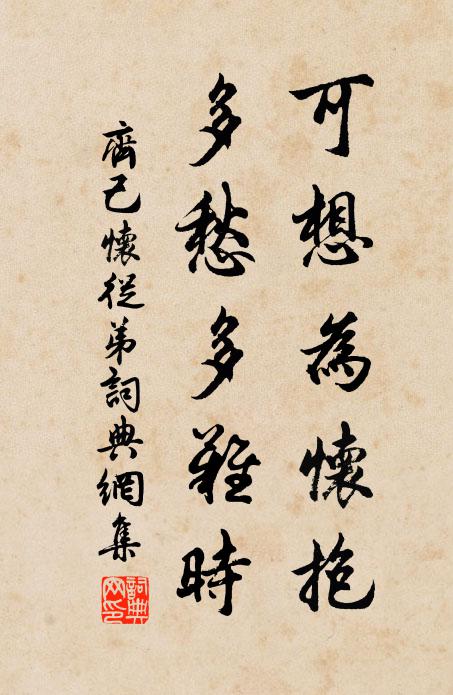 可想為懷抱
多愁多難時
齊己懷從弟詞典網集
詞典